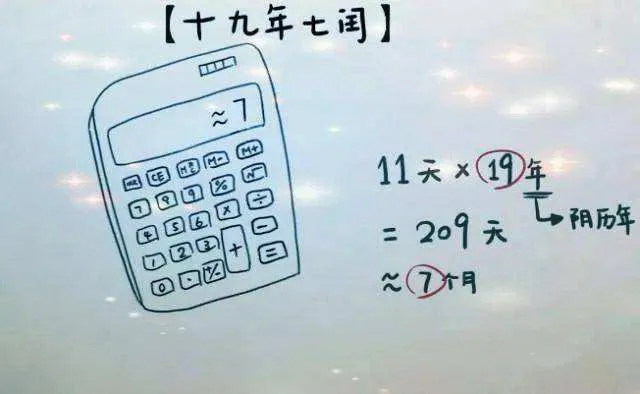 【十九年七闰】
≈7
MR CE M- M+
7 8 9 % √
4 5 6 × ÷
1 2 3 + −
0 · +/- =
11天×19年
→阴历年
= 209天
≈7个月